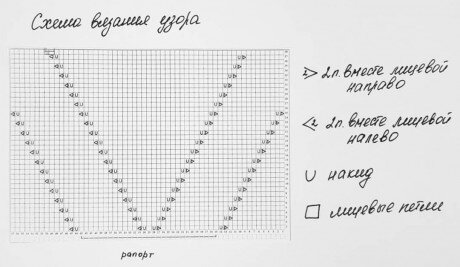 Схема вязания узора
2п. вместе лицевой
направо
2п. вместе лицевой
налево
накид
лицевые петли
рапорт